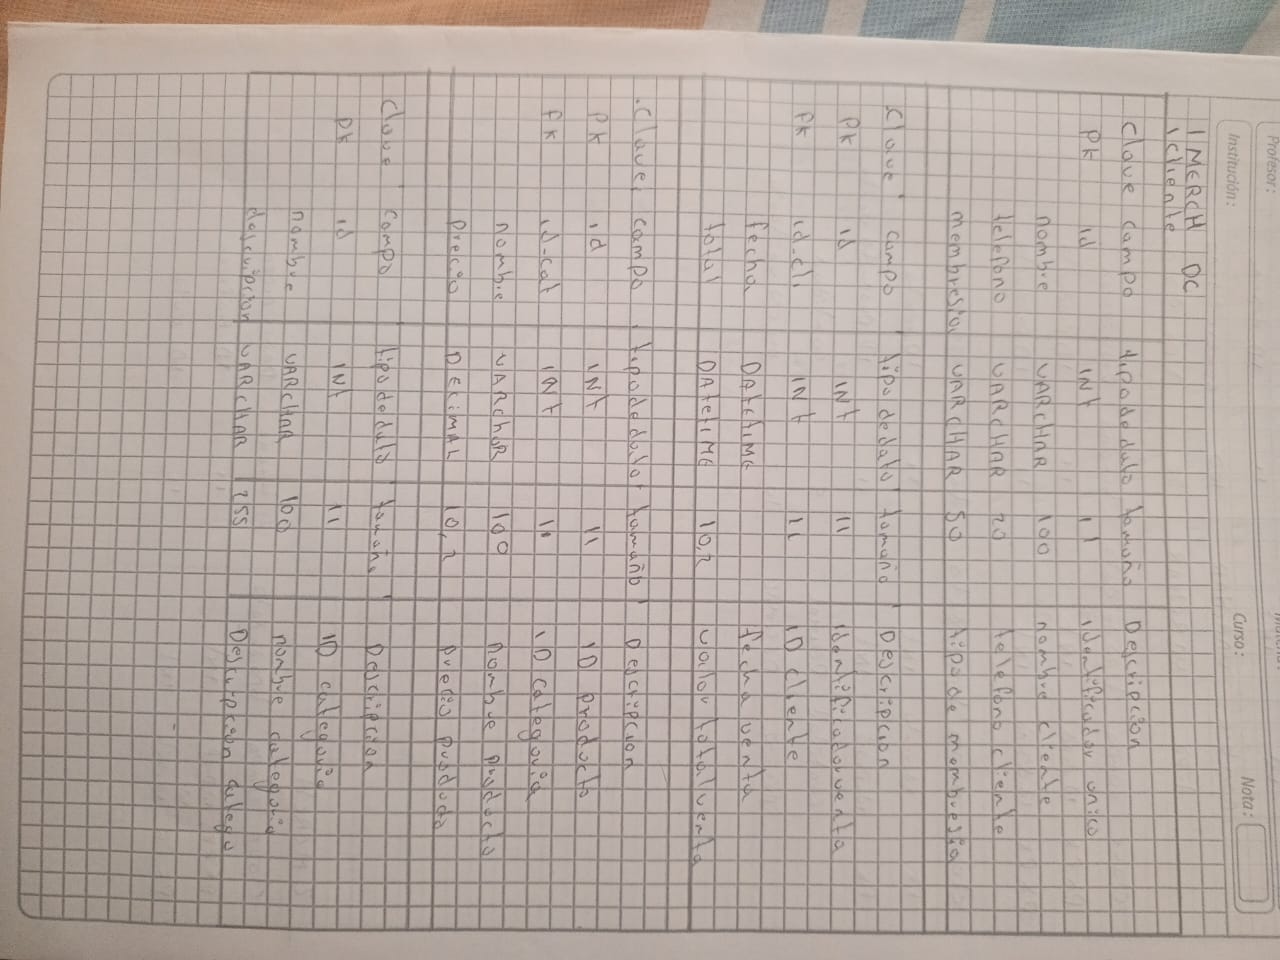 Profesor:
Institución:
Curso:
Nota:
IMERCH DC
1 cliente
Clave campo tipo de dato tamaño Descripcion
PK id INt 11 identificador unico
nombre VARCHAR 100 nombre cliente
telefono VARCHAR 20 telefono cliente
membresia VARCHAR 50 tipo de membresia
Clave campo tipo de dato tamaño Descripcion
PK id INt 11 identificador venta
FK id-cli INt 11 ID cliente
fecha DAteTIME fecha venta
total DAtetIME 10,2 valor total venta
Clave campo tipo de dato tamaño Descripcion
PK id INt 11 ID producto
FK id-cat INt 11 ID categoria
nombre VARchaR 100 nombre producto
Precio DECIMAL 10,2 precio producto
Clave campo tipo de dato tamaño Descripcion
PK id INt 11 ID categoria
nombre VARCHAR 100 nombre categoria
descripcion VARCHAR 255 Descripcion catego